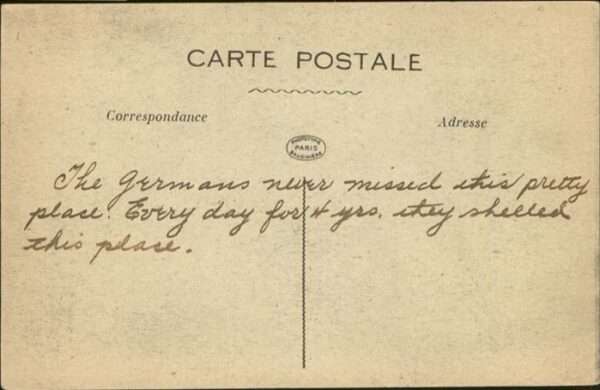 CARTE POSTALE
Correspondance
Adresse
PARIS
The Germans never missed this pretty
place. Every day for 4 yrs. they shelled
this place.